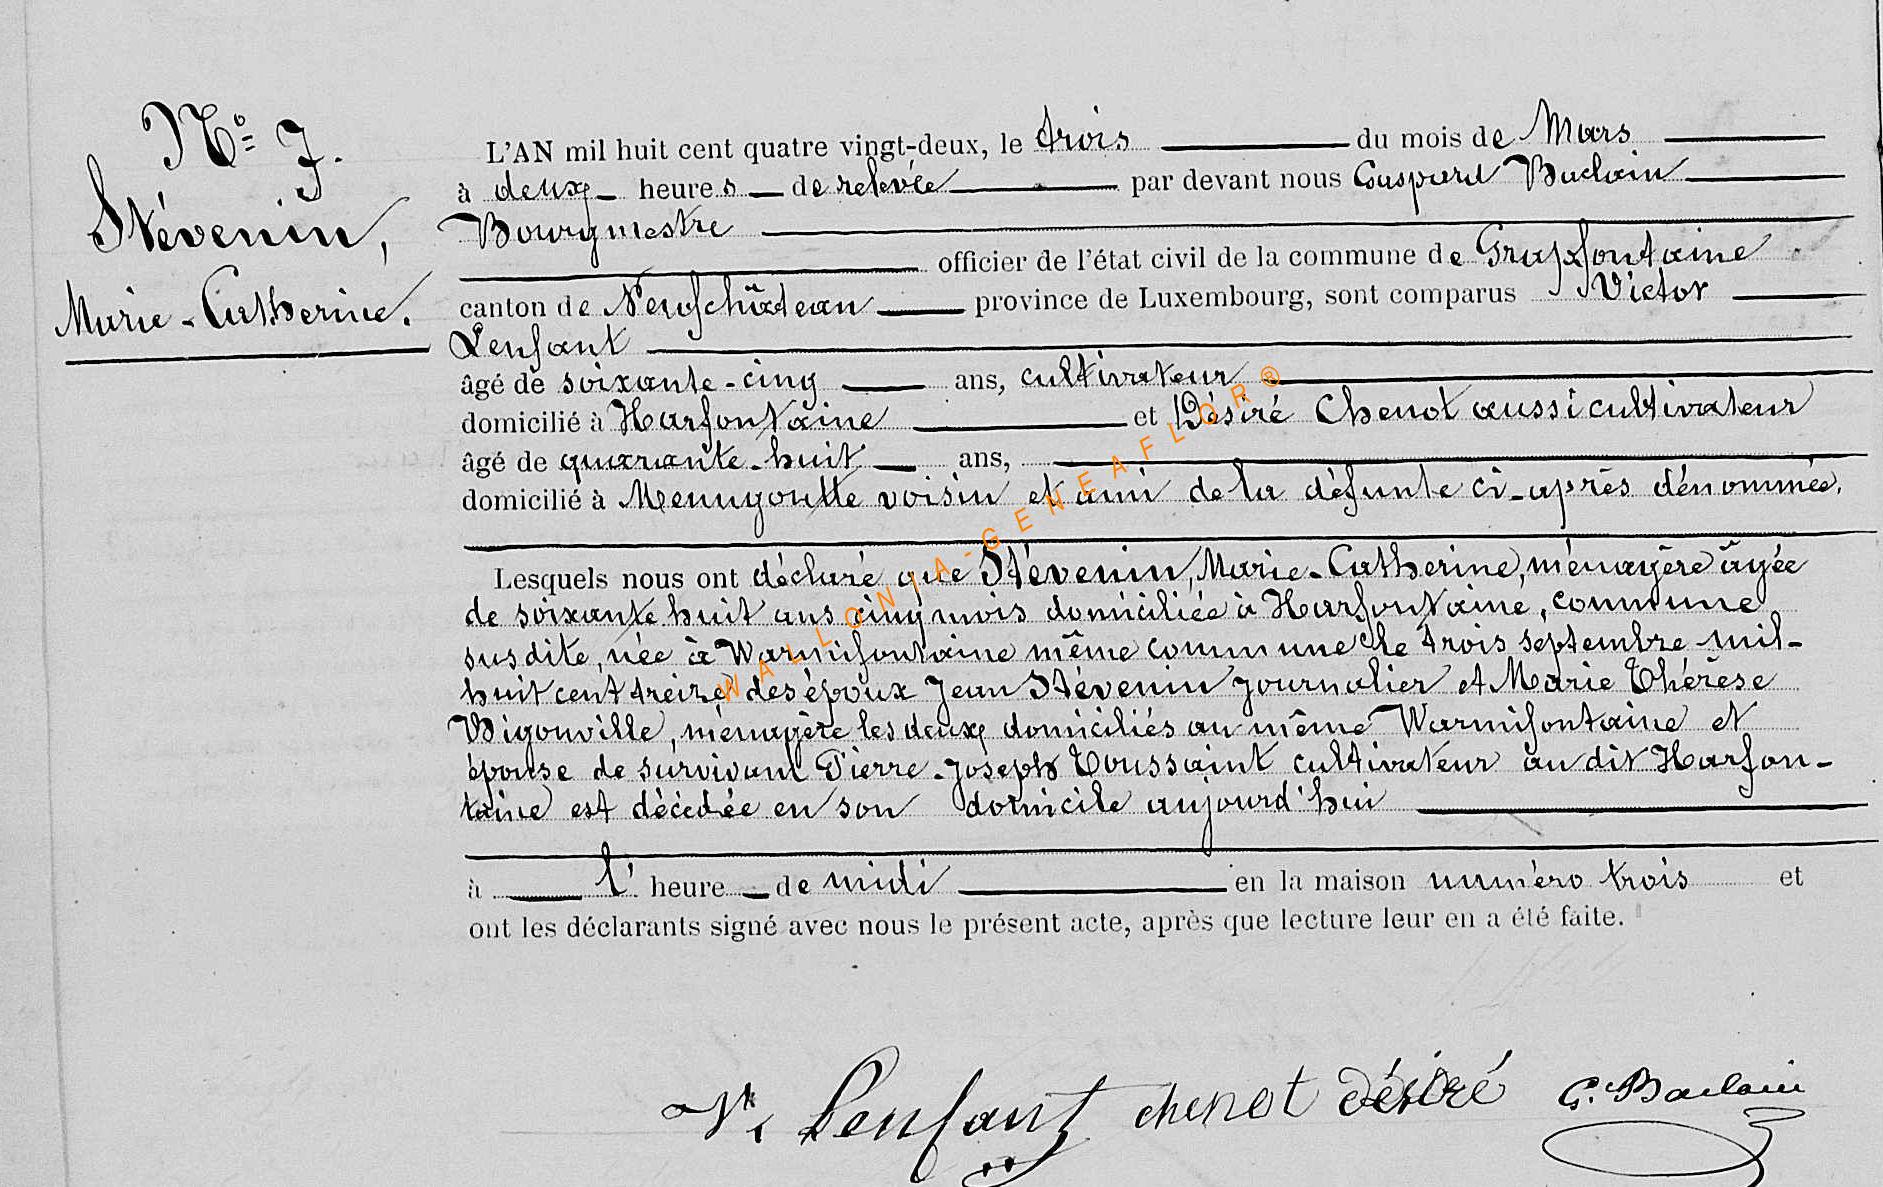 N° 7.
Stévenin,
Marie-Catherine.
L'AN mil huit cent quatre vingt-deux, le trois du mois de Mars
à deux heures de relevée par devant nous Gaspard Baclain
Bourgmestre
officier de l'état civil de la commune de Grapfontaine
canton de Neufchâteau province de Luxembourg, sont comparus Victor
Lenfant
âgé de soixante-cinq ans, cultivateur
domicilié à Harfontaine et Désiré Chenot aussi cultivateur
âgé de quarante-huit ans,
domicilié à Menugoutte voisin et ami de la défunte ci-après dénommée.
Lesquels nous ont déclaré que Stévenin, Marie-Catherine, ménagère âgée
de soixante huit ans cinq mois domiciliée à Harfontaine, commune
susdite, née à Warmifontaine même commune le trois septembre mil-
huit cent treize, des époux Jean Stévenin journalier et Marie Thérèse
Wigonville, ménagère les deux domiciliés au même Warmifontaine et
épouse de survivant Pierre-Joseph Toussaint cultivateur au dit Harfon-
taine est décédée en son domicile aujourd'hui
à l' heure de midi en la maison numéro trois et
ont les déclarants signé avec nous le présent acte, après que lecture leur en a été faite.
Vr Lenfant chenot Désiré G. Baclain
WALLONIA-GENEAFLOR®